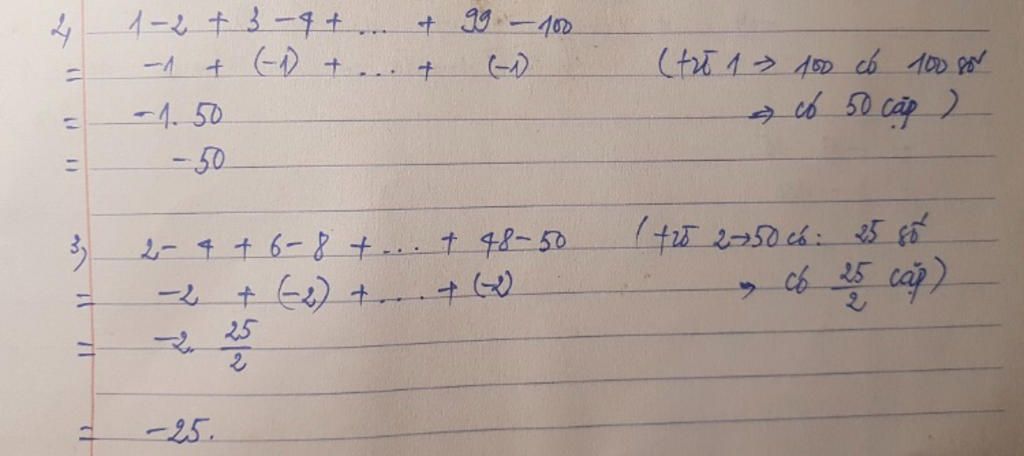 2, 1 - 2 + 3 - 4 + ... + 99 - 100
= -1 + (-1) + ... + (-1) (từ 1 → 100 có 100 số
= -1. 50 ⇒ có 50 cặp)
= -50
3) 2 - 4 + 6 - 8 + ... + 48 - 50 (từ 2→50 có: 25 số
= -2 + (-2) + ... + (-2) → có 25/2 cặp)
= -2. 25/2
= -25.